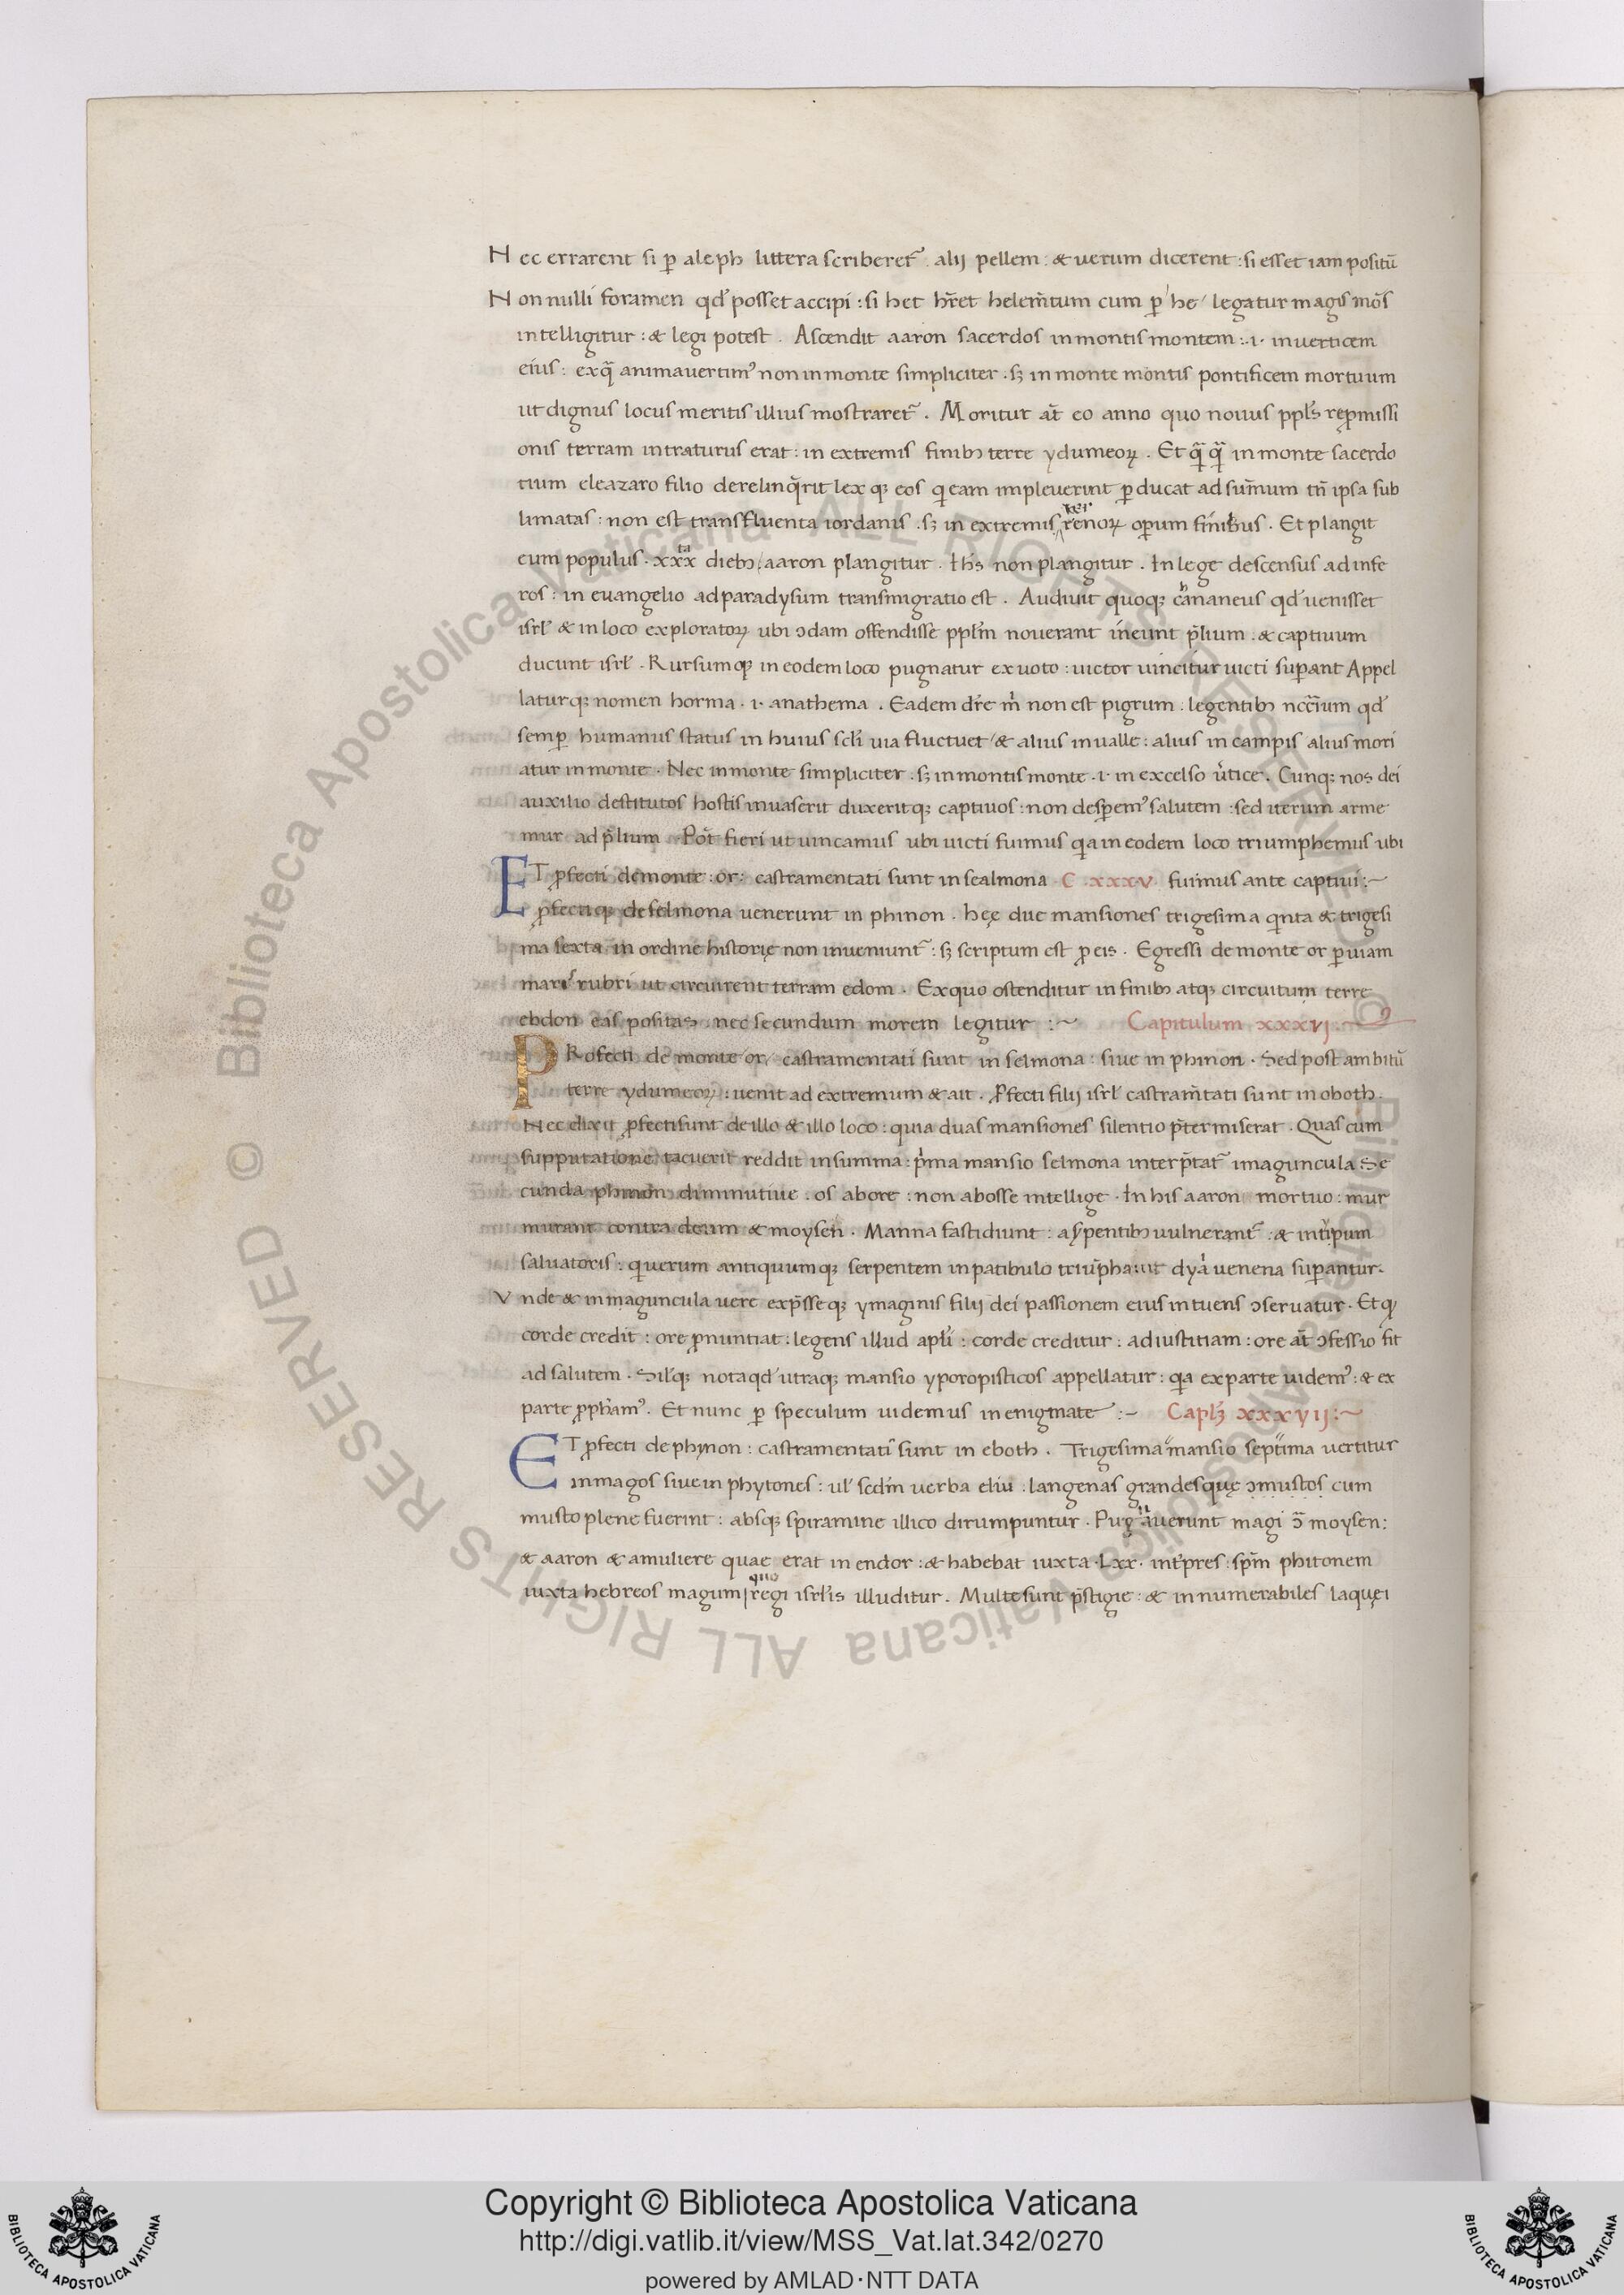 Nec errarent si ꝑ aleph littera scriberet᷑ . alij pellem : & uerum dicerent : si esset iam positū
Non nulli foramen qđ posset accipi : si het hr̄et helem̄tum cum ꝑ he / legatur magis mōs
intelligitur : & legi potest . Ascendit aaron sacerdos in montis montem : .i. in uerticem
eius : ex q̄ animauertim᷒ non in monte simpliciter . sꝫ in monte montis pontificem mortuum
ut dignus locus meritis illius mostraret᷑ . Moritur at̄ eo anno quo nouus ppl̄s reꝓmissi
onis terram intraturus erat : in extremis finibꝫ terre ydumeoꝝ . Et q̄ q̄ in monte sacerdo
tium eleazaro filio derelinq̄rit lex qꝫ eos qi eam impleuerint ꝑducat ad sum̄um tn̄ ipsa sub
limatas : non est trans fluenta iordanis . sꝫ in extremis terrenoꝝ oꝑum finibus . Et plangit
eum populus . xxxta diebꝫ / aaron plangitur . ihs̄ non plangitur . In lege descensus ad infe
ros : in euangelio ad paradysum transmigratio est . Audiuit quoqꝫ chananeus qđ uenisset
isrl̄ & in loco exploratoꝝ ubi ꝯdam offendisse ppl̄m nouerant ineunt p̄lium . & captiuum
ducunt isrl̄ . Rursumqꝫ in eodem loco pugnatur ex uoto : uictor uincitur uicti suꝑant Appel
laturqꝫ nomen horma . i. anathema . Eadem dr̄e m̄ non est pigrum . legentibꝫ ncc̄ium qđ
semꝑ humanus status in huius scl̄i uia fluctuet / & alius in ualle : alius in campis alius mori
atur in monte . Nec in monte simpliciter . sꝫ in montis monte . i. in excelso u̓tice . Cunqꝫ nos dei
auxilio destitutos hostis inuaserit duxeritqꝫ captiuos : non desꝑem᷒ salutem : sed iterum arme
mur ad p̄lium . Pot̄ fieri ut uincamus ubi uicti fuimus qia in eodem loco triumphemus ubi
ET ꝓfecti de monte : or : castramentati sunt in sealmona C xxxv. fuimus ante captiui :~
ꝓfectiqꝫ de selmona uenerunt in phinon . hęę due mansiones trigesima qinta & trigesi
ma sexta in ordine historię non inueniunt᷑ : sꝫ scriptum est ꝓ eis . Egressi de monte or ꝑ uiam
maris rubri ut circuirent terram edom . Ex quo ostenditur in finibꝫ atqꝫ circuitum terre
ebdon eas positas . nec secundum morem legitur :~ Capitulum xxxvj :~
PRofecti de monte or / castramentati sunt in selmona : siue in phinon . Sed post ambitū
terre ydumeoꝝ : uenit ad extremum & ait . Ꝓfecti filij isrl̄ castram̄tati sunt in oboth .
Nec dixit ꝓfecti sunt de illo & illo loco : quia duas mansiones silentio p̄termiserat . Quas cum
supputatione tacuerit reddit in summa : p̓ma mansio selmona interp̄tat᷑ imaguncula Se
cunda phinon diminutiue . os ab ore : non ab osse intellige . In his aaron mortuo : mur
murant contra deum & moysen . Manna fastidiunt : a s̓pentibꝫ uulnerant᷑ : & in ti̓pum
saluatoris : qi uerum antiquumqꝫ serpentem in patibulo triūphauit dya̓ uenena suꝑantur .
Vnde & inmaguncula uere exp̄sse qꝫ ymaginis filij dei passionem eius intuens ꝯseruatur . Et qꝫ
corde credit : ore ꝓnuntiat : legens illud apl̄i : corde creditur : ad iustitiam : ore at̄ ꝯfessio fit
ad salutem . Sil̄qꝫ nota qđ utraqꝫ mansio yporopisticos appellatur : qia ex parte uidem᷒ : & ex
parte ꝓph̄am᷒ . Et nunc ꝑ speculum uidemus in enigmate :~ Capl̄ꝫ xxxvij :~
ET ꝓfecti de phynon : castramentati sunt in eboth . Trigesima mansio septima uertitur
in magos siue in phytones : ul̄ scd̄m uerba eliu : langenas grandesquę ꝯmustos cum
musto plene fuerint : absqꝫ spiramine illico dirumpuntur . Pugnauerunt magi ꝯ̄ moysen :
& aaron & a muliere quae erat in endor : & habebat iuxta . Lxx . int̓pres : spm̄ phitonem
iuxta hebreos magum quo regi isrl̄is illuditur . Multe sunt p̄stigie : & innumerabiles laquęi
Copyright © Biblioteca Apostolica Vaticana
http://digi.vatlib.it/view/MSS_Vat.lat.342/0270
powered by AMLAD·NTT DATA
BIBLIOTECA APOSTOLICA VATICANA
BIBLIOTECA APOSTOLICA VATICANA
Biblioteca Apostolica Vaticana ALL RIGHTS RESERVED ©
Biblioteca Apostolica Vaticana ALL RIGHTS RESERVED ©